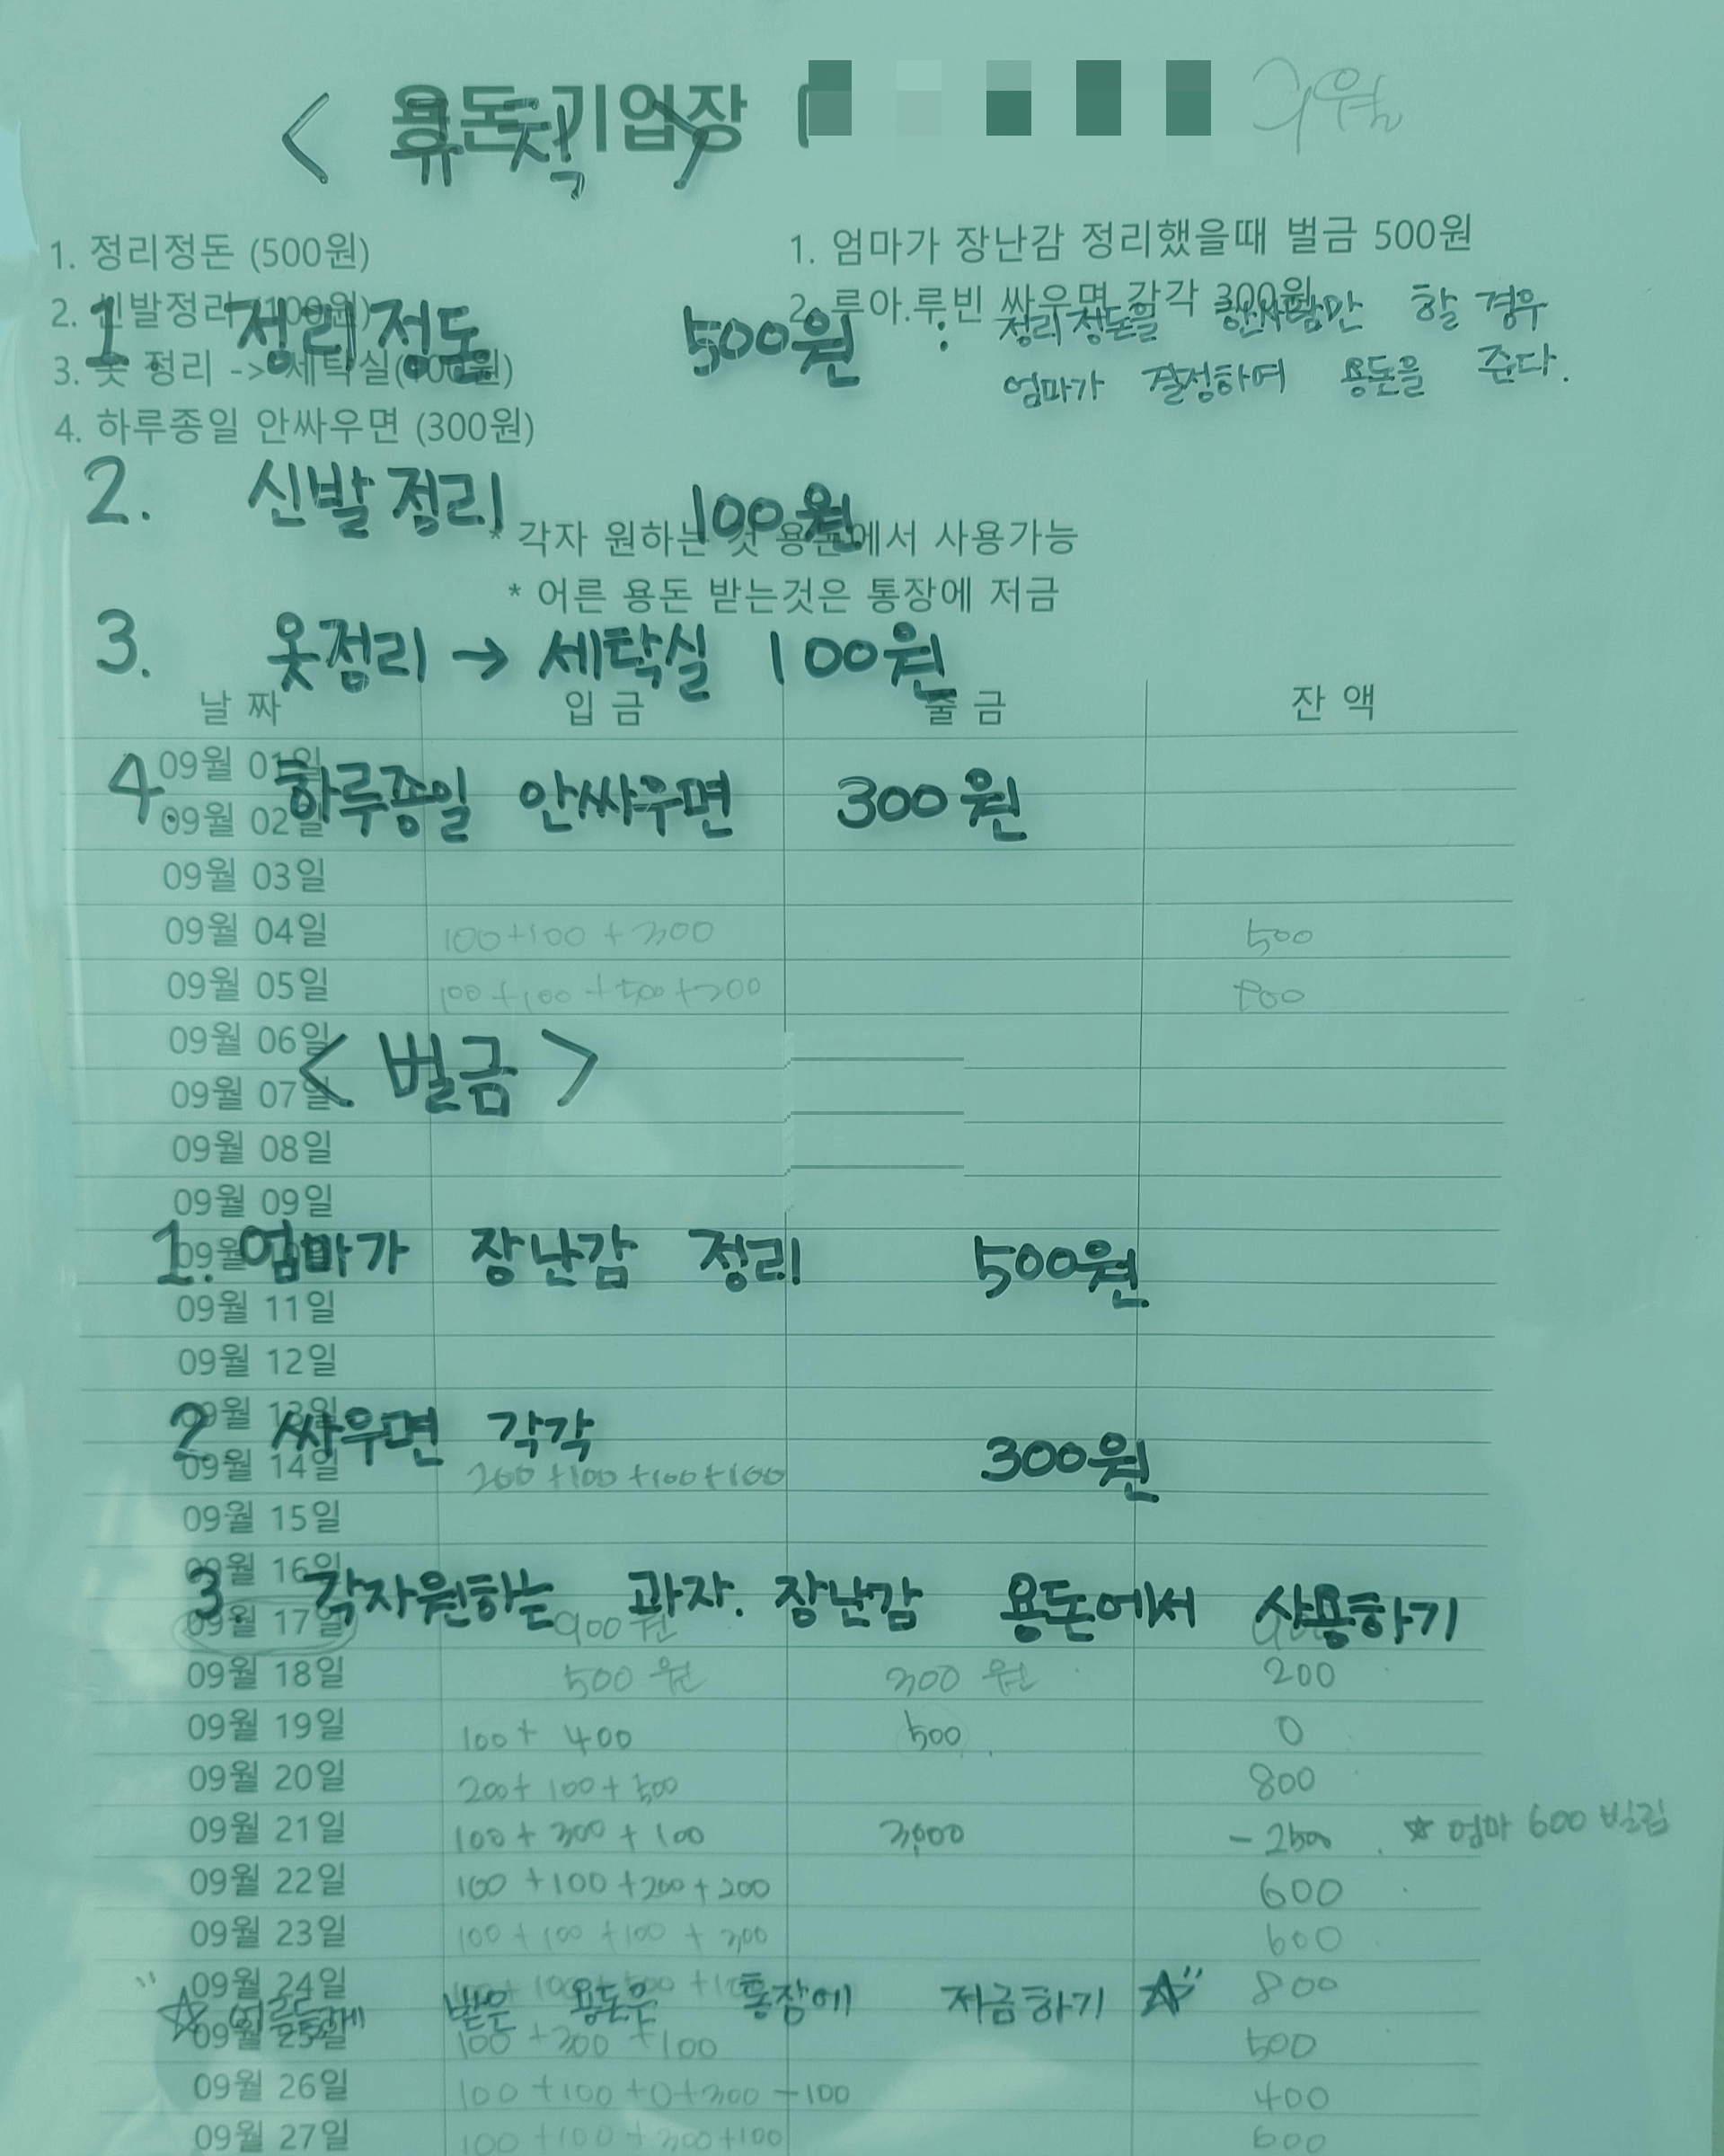 용돈기입장
9월
< 규칙 >
1. 정리정돈 (500원)
2. 신발정리 (100원)
3. 옷 정리 -> 세탁실(100원)
4. 하루종일 안싸우면 (300원)
1. 엄마가 장난감 정리했을때 벌금 500원
2. 루아.루빈 싸우면 각각 300원
* 각자 원하는 것 용돈에서 사용가능
* 어른 용돈 받는것은 통장에 저금
1. 정리정돈 500원 : 정리정돈을 한사람만 할 경우
엄마가 결정하여 용돈을 준다.
2. 신발정리 100원
3. 옷정리 → 세탁실 100원
4. 하루종일 안싸우면 300원
< 벌금 >
1. 엄마가 장난감 정리 500원
2. 싸우면 각각 300원
3. 각자원하는 과자. 장난감 용돈에서 사용하기
"☆ 어른들께 받은 용돈은 통장에 저금하기 ☆"
날 짜 입 금 출 금 잔 액
09월 01일
09월 02일
09월 03일
09월 04일 100+100+300 500
09월 05일
09월 06일
09월 07일
09월 08일
09월 09일
09월 10일
09월 11일
09월 12일
09월 13일
09월 14일 200+100+100+100
09월 15일
09월 16일
09월 17일 900원
09월 18일 500원 300원 200
09월 19일 100+400 500 0
09월 20일 200+100+500 800
09월 21일 100+300+100 3,000 -2500 ☆ 엄마 600 빌림
09월 22일 100+100+200+200 600
09월 23일 100+100+100+300 600
09월 24일 800
09월 25일 100+300+100 500
09월 26일 100+100+0+300-100 400
09월 27일 100+100+300+100 600